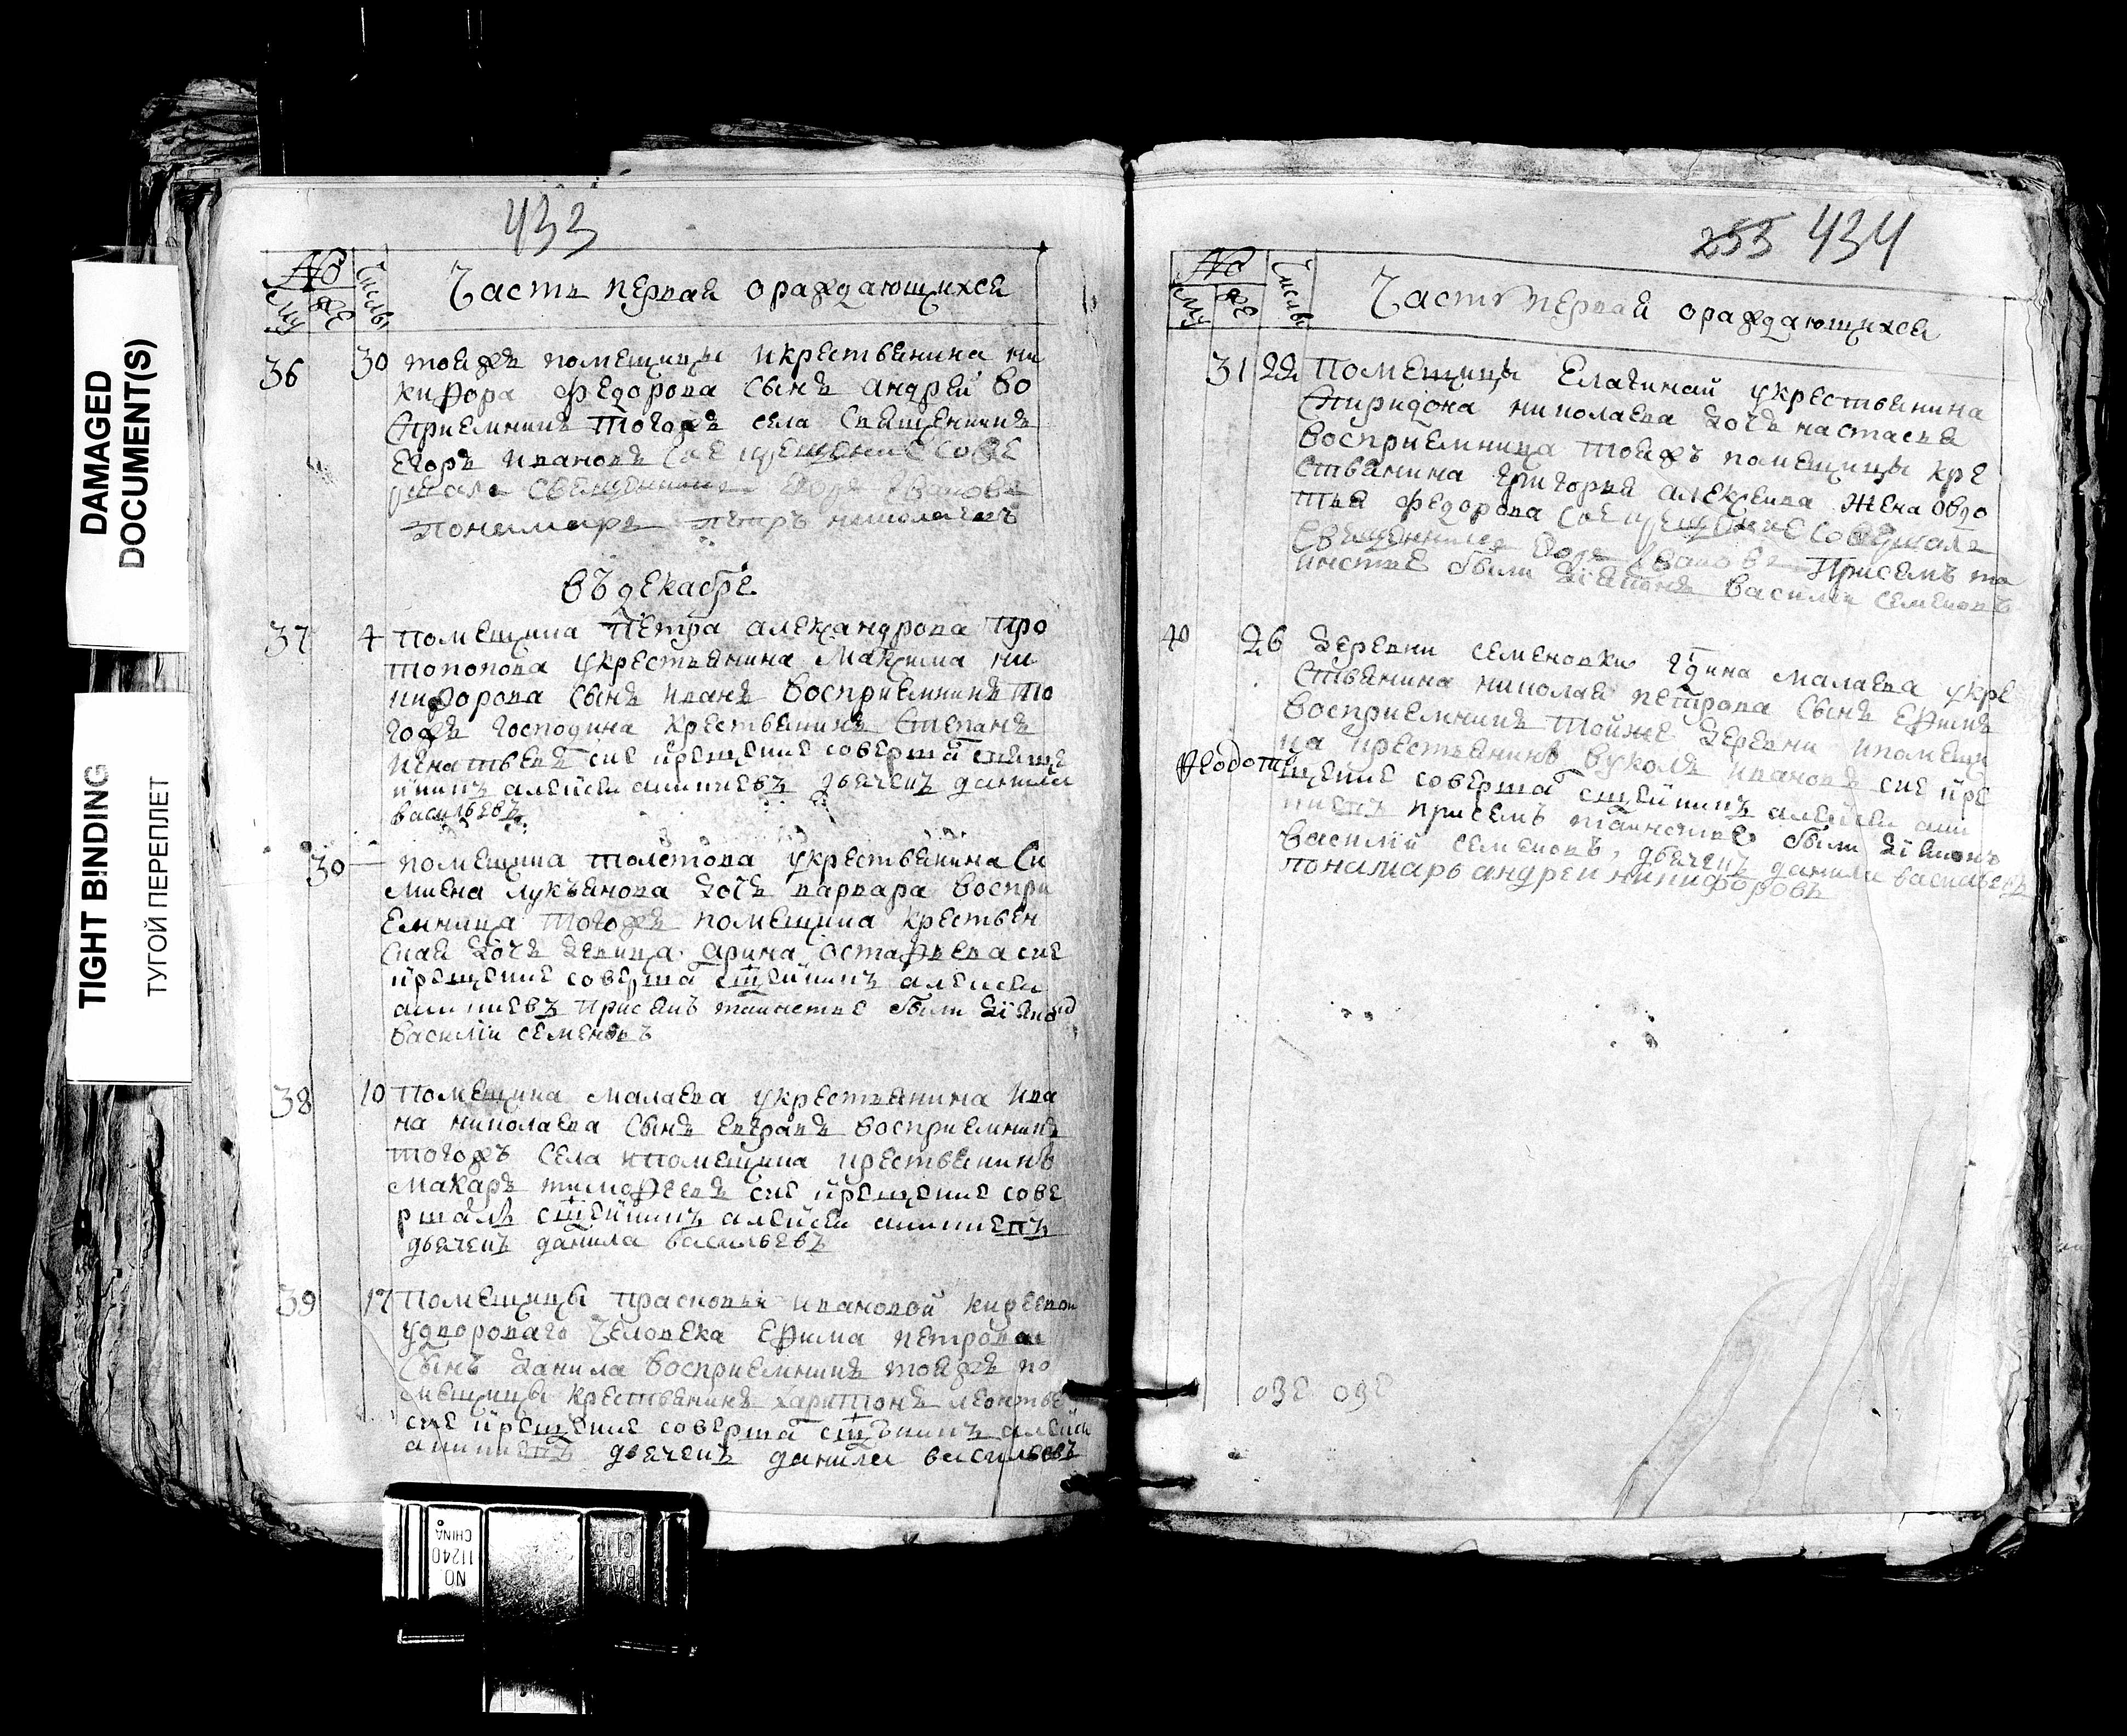 DAMAGED
DOCUMENT(S)
TIGHT BINDING
ТУГОЙ ПЕРЕПЛЕТ
433
№ Числы
Часть первая ораждающихся
му же
36 30 тоейжъ помещицы укрестьянина ни
кифора федорова сынъ андрей во
сприемникъ тогожъ села священникъ
Егоръ ивановъ сие крещение сове
ршалъ священникъ Егоръ Ивановъ
Пономарь петръ николаевъ
въ декабре
37 4 помещика петра александрова про
топопова укрестьянина максима ни
кифорова сынъ иванъ восприемникъ то
гожъ господина крестьянинъ степанъ
игнатьевъ сие крещение соверша
алексеи дьячекъ данила
васильевъ
30 помещика толстова укрестьянина си
миена лукъянова дочъ варвара воспри
емница тогожъ помещика крестьян
ская дочъ девица арина остафьева сие
крещение соверша алексеи
присемъ таинстве были диаконъ
василiи семеновъ
38 10 помещика малаева укрестьянина ива
на николаева сынъ евграфъ восприемникъ
тогожъ села ипомещика крестьянинъ
макаръ тимофеевъ сие крещение сове
ршалъ алексеи
дьячекъ данила васильевъ
39 17 помещицы прасковьи ивановой киреевои
удворового человека ефима петрова
сынъ данила восприемникъ тоейжъ по
мещицы крестьянинъ харитонъ леонтье
сие крещение соверша алексеи
дьячекъ данила васильевъ
253 434
№ Числы
Часть первая ораждающихся
му же
31 22 помещицы Елагинай укрестьянина
спиридона николаева дочъ настасья
восприемница тоейжъ помещицы кре
стьянина григорья алексеева жена овдо
тья федорова сие крещение совершалъ
священникъ Егоръ Ивановъ присемъ та
инстве были диаконъ василiи семеновъ
40 26 деревни семеновки гдина малаева укре
стьянина николая петрова сынъ ефимъ
восприемникъ тойже деревни ипомещи
ка крестьянинъ вуколъ ивановъ сие кре
щение соверша алексеи
присемъ таинстве были диаконъ
василiи семеновъ, дьячекъ данила васильевъ
пономарь андреи никифоровъ
NO
11240
CHINA